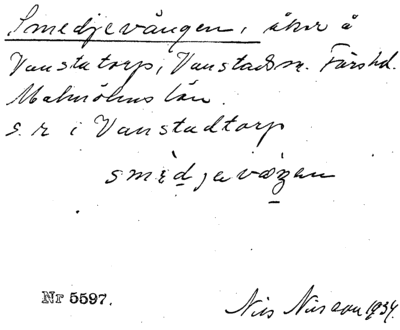 Smedjevången, åker å
Vanstatorp, Vanstads sn. Färs hd.
Malmöhus län.
s. r i Vanstadtorp
smèdjevåŋen
Nr 5597.
Nils Nilsson 1934.